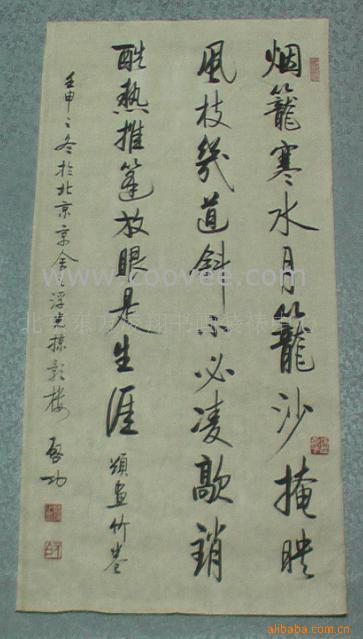 烟籠寒水月籠沙掩映
風枝幾道斜不必凌歊銷
酷熱推篷放眼是生涯 題畫竹卷
壬申之冬於北京京舍之浮光掠影樓 啟功
www.coovee.com
alibaba.com.cn